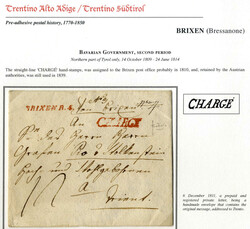 Trentino Alto Adige / Trentino Südtirol
Pre-adhesive postal history, 1770-1850
BRIXEN (Bressanone)
BAVARIAN GOVERNMENT, SECOND PERIOD
Northern part of Tyrol only, 14 October 1809 - 24 June 1814
The straight-line 'CHARGÉ' hand-stamps, was assigned to the Brixen post office probably in 1810, and, retained by the Austrian
authorities, was still used in 1839.
BRIXEN
CHARGÉ
CHARGÉ
An
Herrn Herrn
Grafen
Hoch und
a
Trient.
6 December 1811, a prepaid and
registered private letter, being a
handmade envelope that contains the
original message, addressed to Trento.